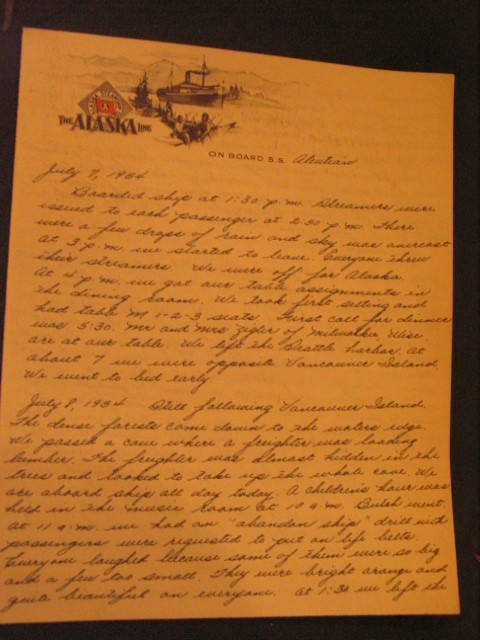 THE ALASKA LINE
ON BOARD S.S. Aleutian
July 7, 1954
Boarded ship at 1:30 p.m. Streamers were
issued to each passenger at 2:30 p.m. There
were a few drops of rain and sky was overcast
at 3 p.m. we started to leave. Everyone threw
their streamers. We were off for Alaska.
At 4 p.m. we got our table assignments in
the dining room. We took first setting and
had table M 1-2-3 seats. First call for dinner
was 5:30. Mr and Mrs Zigler of Milwaukee, Wisc.
are at our table. We left the Seattle harbor. At
about 7 we were opposite Vancouver Island.
We went to bed early.
July 8, 1954 Still following Vancouver Island.
The dense forests come down to the waters edge.
We passed a cove where a freighter was loading
lumber. The freighter was almost hidden in the
trees and looked to take up the whole cove. We
are aboard ship all day today. A children's hour was
held in the music room at 10 a.m. Butch went.
at 11 a.m. we had an "abandon ship" drill with
passengers were requested to put on life belts.
Everyone laughed because some of them were so big
and a few too small. They were bright orange and
quite beautiful on everyone. At 1:30 we left the